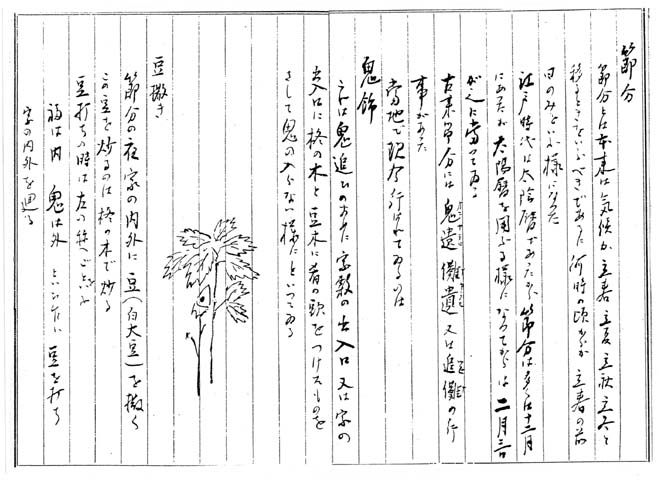 節分
節分とは本来は気候が立春立夏立秋立冬と
移るときをいふべきであるに何時の頃からか立春の前
日のみをいふ様になった
江戸時代は太陰暦であったから節分は多くは十二月
にあったが太陽暦を用ふる様になってからは二月三日
がそれに当ってゐる
古来節分には鬼遣 儺遣 又は追儺の行
事があった
当地で現今行はれてゐるのは
鬼飾
これは鬼追ひのあた 家敷の出入口又は家の
出入口に柊の木と豆木に肴の頭をつけたものを
さして鬼の入らない様だといってゐる
豆撒き
節分の夜家の内外に豆(白大豆)を撒く
この豆を炒るのは柊の木で炒る
豆打ちの時は左の
福は内 鬼は外
といひ乍ら豆を打ち
家の内外を廻る